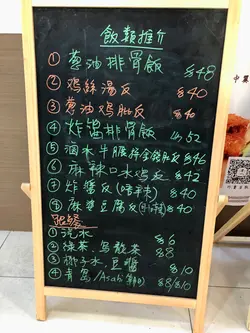 飯類推介
① 蔥油排骨飯 $48
② 鸡絲湯反 $40
③ 蔥油鸡肶反 $40
④ 炸醬排骨飯 $52
⑤ 滷水牛腱拼 反 $46
⑥ 麻辣口水鸡反 $42
⑦ 炸醬反(唔辣) $40
⑧ 麻婆豆腐反 $40
跟餐
① 汽水 $6
② 綠茶、烏龍茶 $8
③ 椰子水、豆漿 $10
④ 青島/Asahi $8/$10